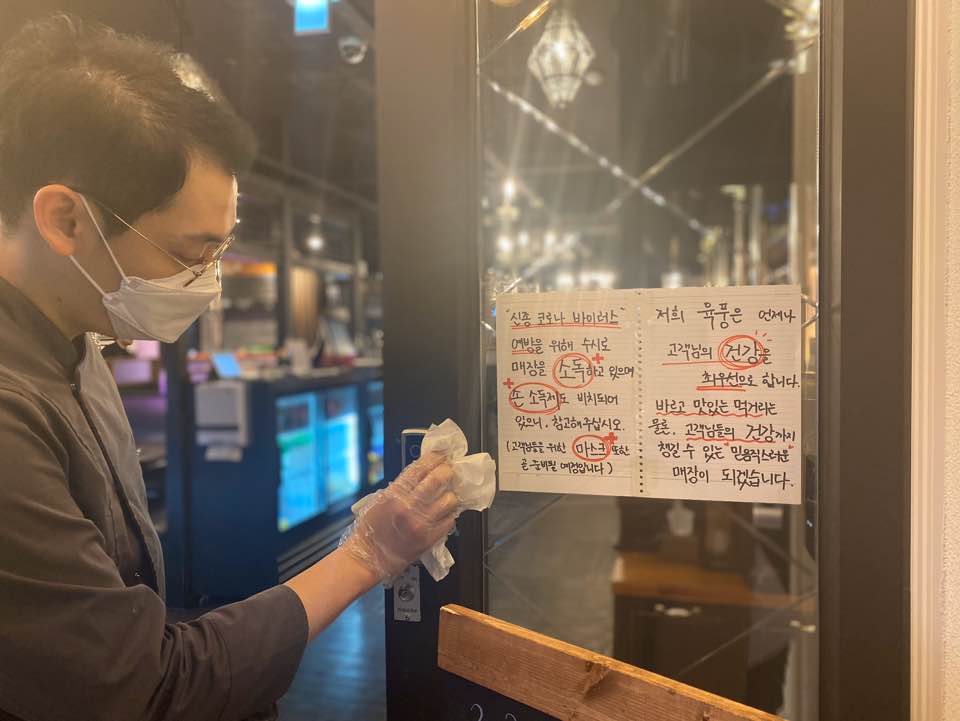 "신종 코로나 바이러스"
예방을 위해 수시로
매장을 소독하고 있으며
손 소독제도 비치되어
있으니, 참고해주십시오.
(고객님들을 위한 마스크 또한
곧 준비될 예정입니다)
저희 육풍은 언제나
고객님의 건강을
최우선으로 합니다.
바르고 맛있는 먹거리는
물론, 고객님들의 건강까지
챙길 수 있는 믿음직스러운
매장이 되겠습니다.